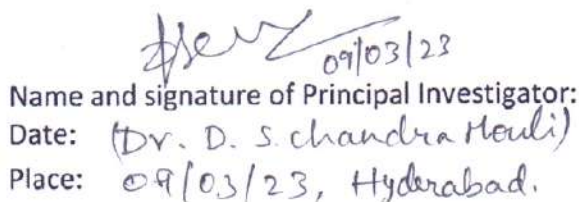 09/03/23
Name and signature of Principal Investigator:
Date: (Dr. D. S. chandra Mouli)
Place: 09/03/23, Hyderabad.